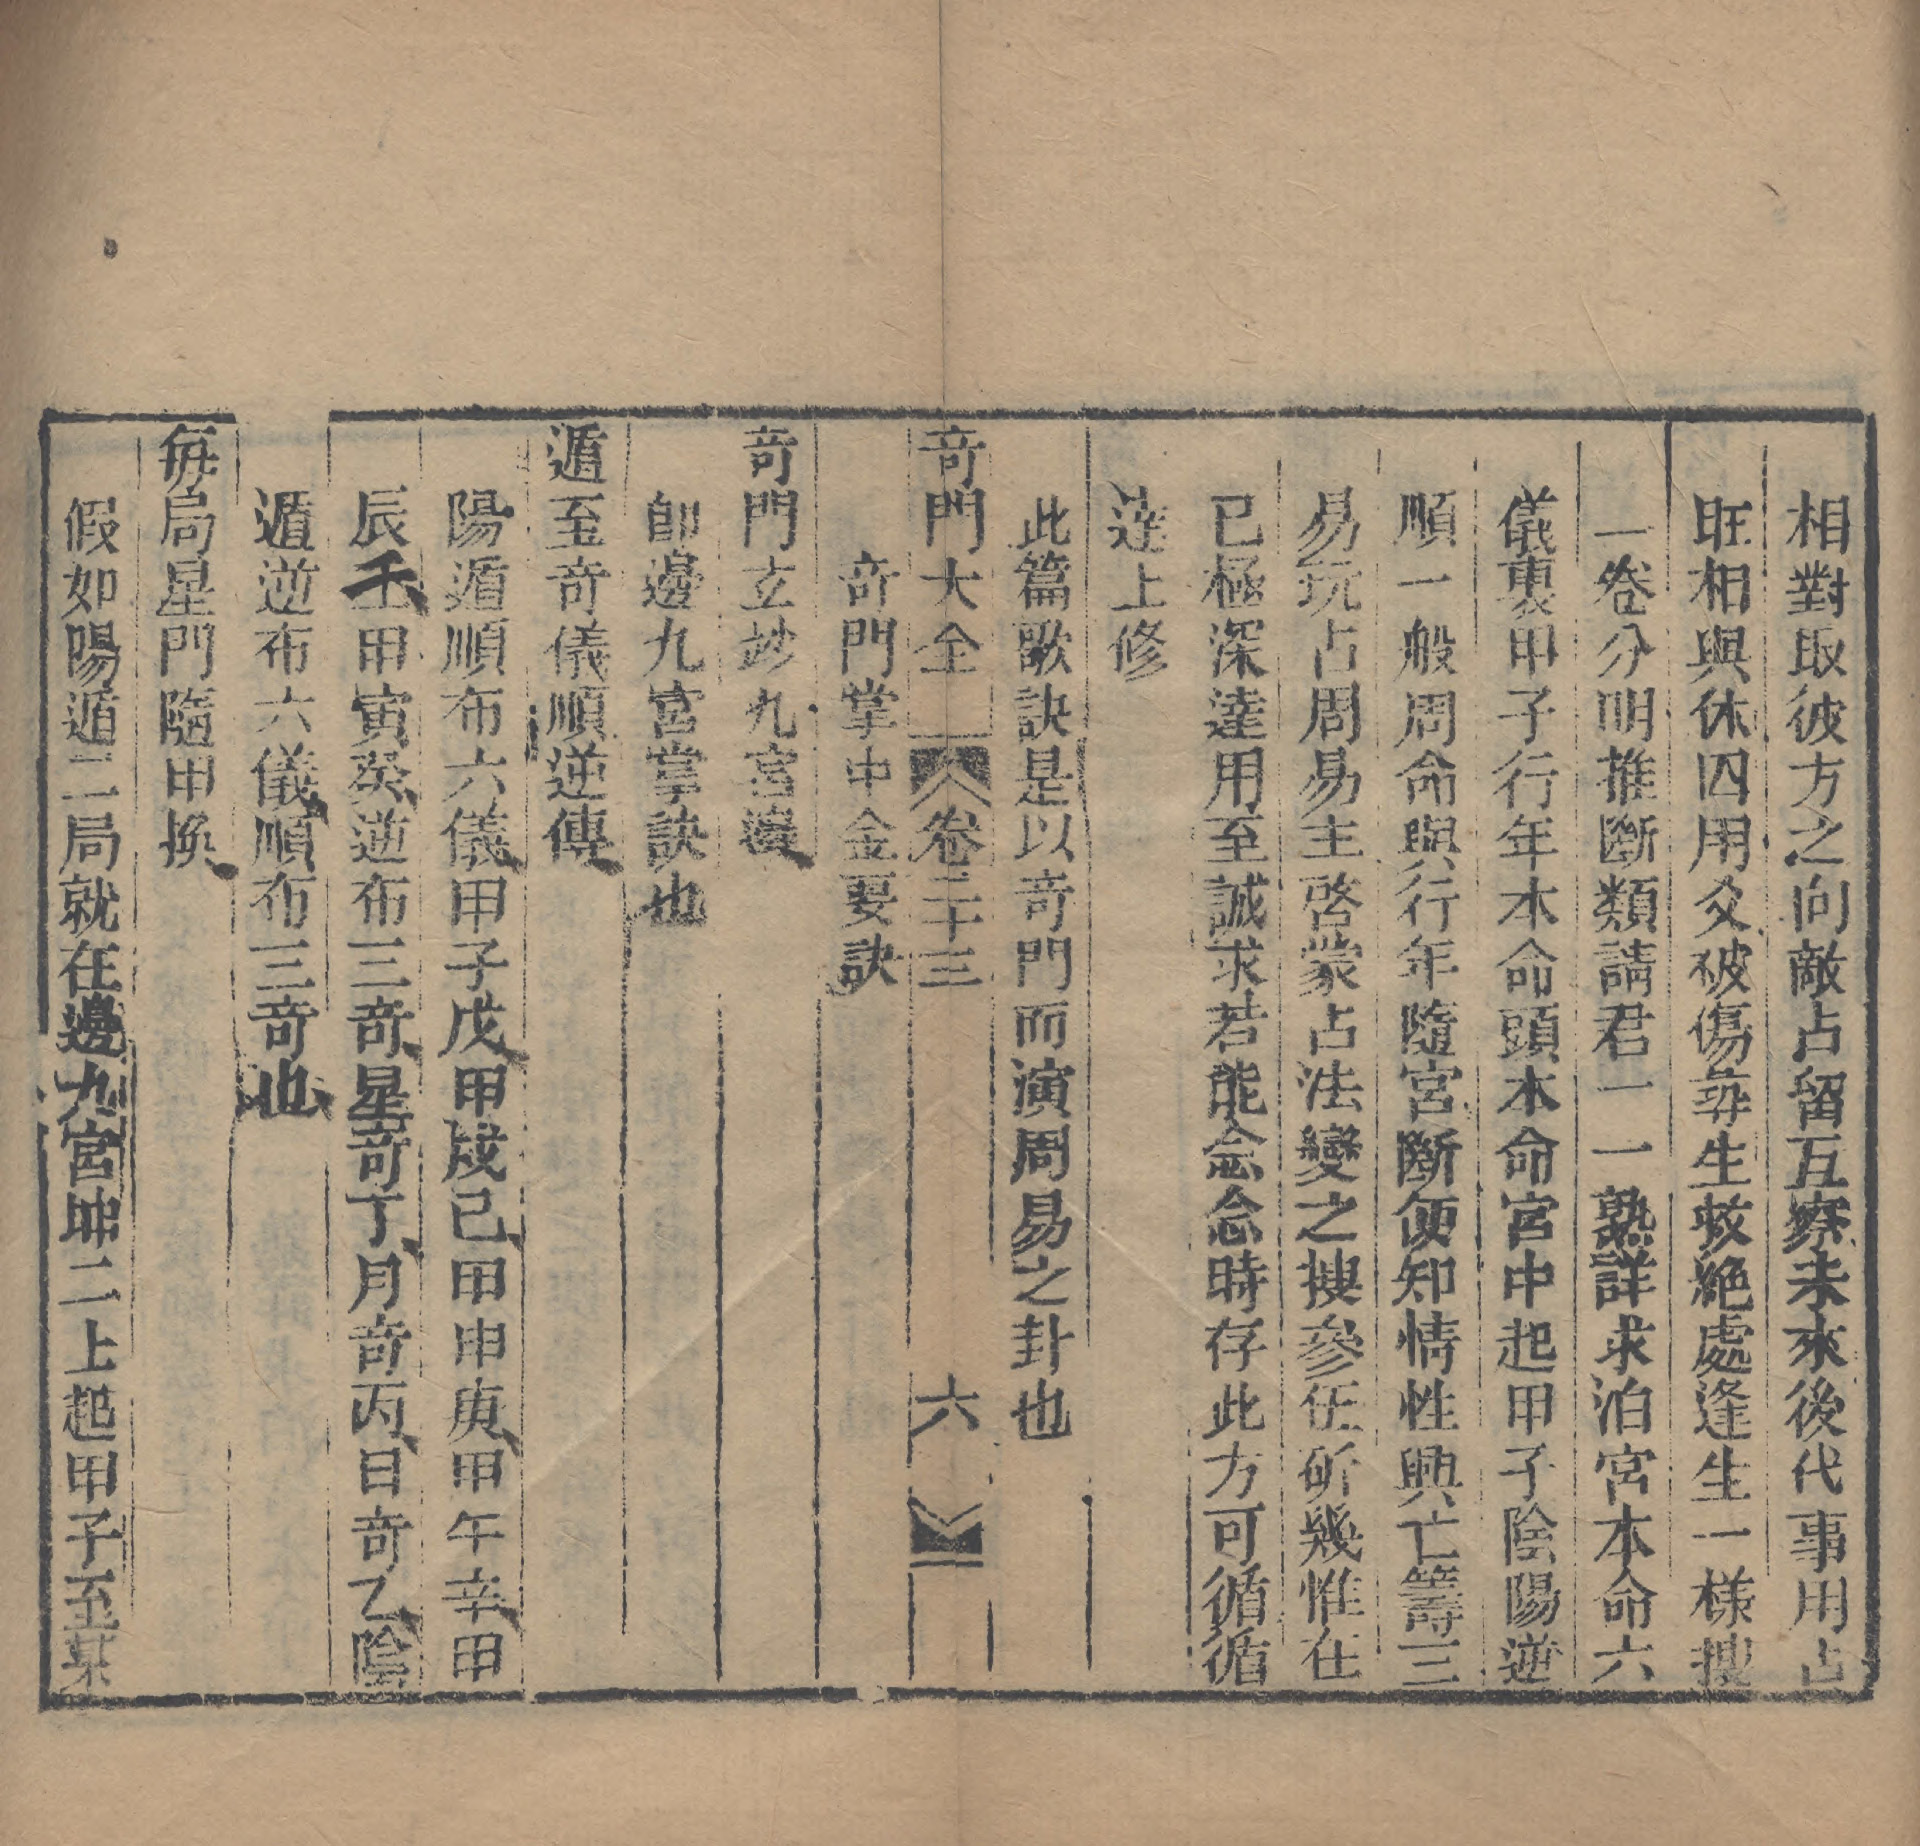 相對取彼方之向敵占留互察未來後代事用占
旺相與休囚用爻破傷尋生救絕處逢生一樣搜
一卷分明推斷類請君一一熟詳求泊宮本命六
儀裏甲子行年本命頭本命宮中起甲子陰陽逆
順一般周命與行年隨宮斷便知情性興亡籌三
易玩占周易主啓蒙占法變之搜參伍研幾惟在
已極深達用至誠求若能念念時存此方可循循
達上修
此篇歌訣是以奇門而演周易之卦也
奇門大全 卷二十三 六
奇門掌中金要訣
奇門玄妙九宮邊
卽邊九宮掌訣也
遁至奇儀順逆傳
陽遁順布六儀甲子戊甲戌己甲申庚甲午辛甲
辰壬甲寅癸逆布三奇星奇丁月奇丙日奇乙陰
遁逆布六儀順布三奇也
每局星門隨甲換
假如陽遁二局就在邊九宮坤二上起甲子至某